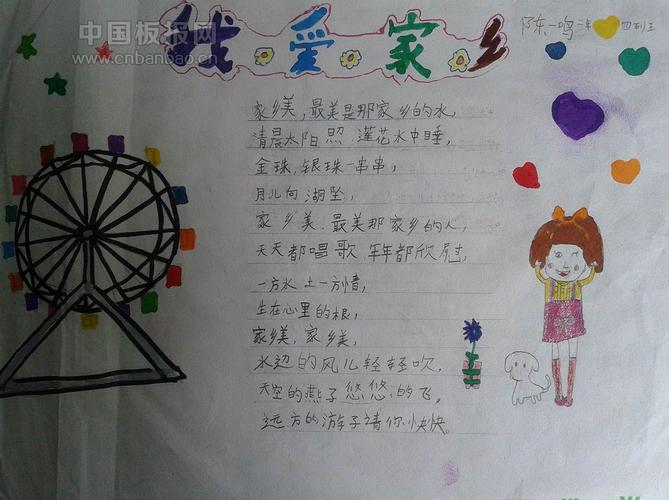 中国板报网
www.cnbanbao.cn
我爱家乡
陈一鸣 二年四班
家乡美，最美是那家乡的水，
清晨太阳照 莲花水中睡，
金珠，银珠一串串，
月儿向湖坠，
家乡美，最美那家乡的人，
天天都唱歌 年年都欣慰，
一方水土一方情，
生在心里的根，
家乡美，家乡美，
水边的风儿轻轻吹，
天空的燕子悠悠的飞，
远方的游子请你快快。